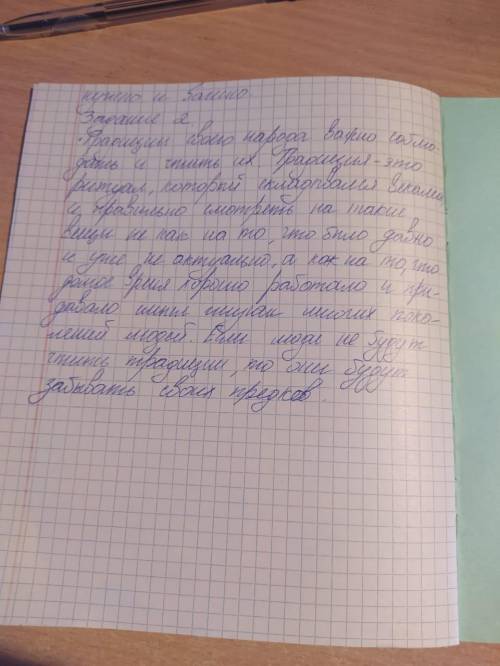 нужно и важно.
Задание 2
Традиции своего народа важно соблю-
дать и чтить их. Традиция - это
ритуал, который складывался веками
и правильно смотреть на такие
вещи не как на то, что было давно
и уже не актуально, а как на то, что
долгое время хорошо работало и при-
давало смысл жизням многих поко-
лений людей. Если люди не будут
чтить традиции, то они будут
забывать своих предков.